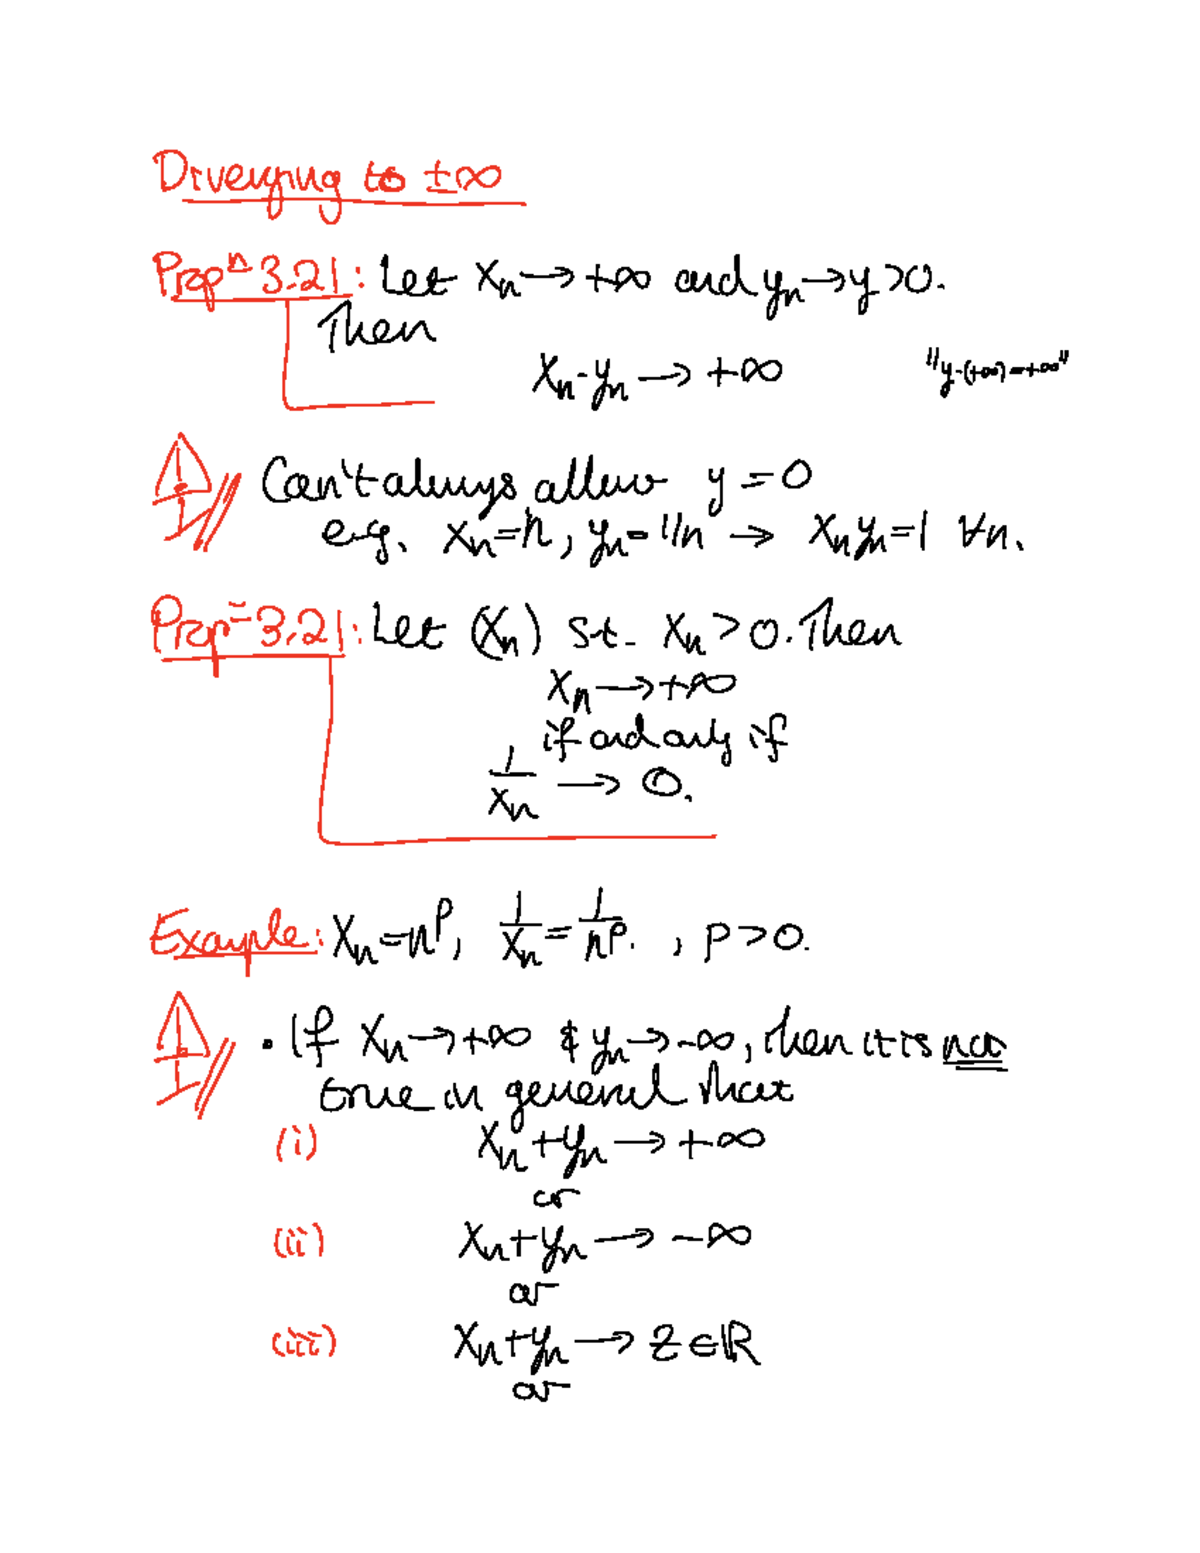 Diverging to ±∞
Propⁿ 3.21: Let xₙ → +∞ and yₙ → y > 0.
Then
xₙ·yₙ → +∞ "y·(+∞) = +∞"
Can't always allow y = 0
e.g. xₙ = n, yₙ = 1/n → xₙyₙ = 1 ∀n.
Propⁿ 3.21: Let (xₙ) s.t. xₙ > 0. Then
xₙ → +∞
if and only if
1/xₙ → 0.
Example: xₙ = nᵖ, 1/xₙ = 1/nᵖ. , p > 0.
• If xₙ → +∞ & yₙ → -∞, then it is not
true in general that
(i) xₙ + yₙ → +∞
or
(ii) xₙ + yₙ → -∞
or
(iii) xₙ + yₙ → z ∈ ℝ
or